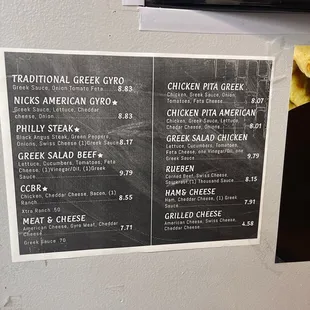 TRADITIONAL GREEK GYRO
Greek Sauce, Onion Tomato Feta 8.83
NICKS AMERICAN GYRO★
Greek Sauce, Lettuce, Cheddar
cheese, Onion 8.83
PHILLY STEAK★
Black Angus Steak, Green Peppers,
Onions, Swiss Cheese (1)Greek Sauce 8.17
GREEK SALAD BEEF★
Lettuce, Cucumbers, Tomatoes, Feta
Cheese, (1)Vinegar/Oil, (1)Greek
Sauce 9.79
CCBR★
Chicken, Cheddar Cheese, Bacon, (1)
Ranch 8.55
Xtra Ranch .50
MEAT & CHEESE
American Cheese, Gyro Meat, Cheddar
Cheese 7.71
Greek Sauce .75
CHICKEN PITA GREEK
Chicken, Greek Sauce, Onion,
Tomatoes, Feta Cheese 8.07
CHICKEN PITA AMERICAN
Chicken, Greek Sauce, Lettuce,
Chedar Cheese, Onions 8.01
GREEK SALAD CHICKEN
Lettuce, Cucumbers, Tomatoes,
Feta Cheese, one Vinegar/Oil, one
Greek Sauce 9.79
RUEBEN
Corned Beef, Swiss Cheese,
(1) Thousand Sauce 8.15
HAM& CHEESE
Ham, Cheddar Cheese, (1) Greek
Sauce 7.91
GRILLED CHEESE
American Cheese, Swiss Cheese,
Cheddar Cheese 4.58